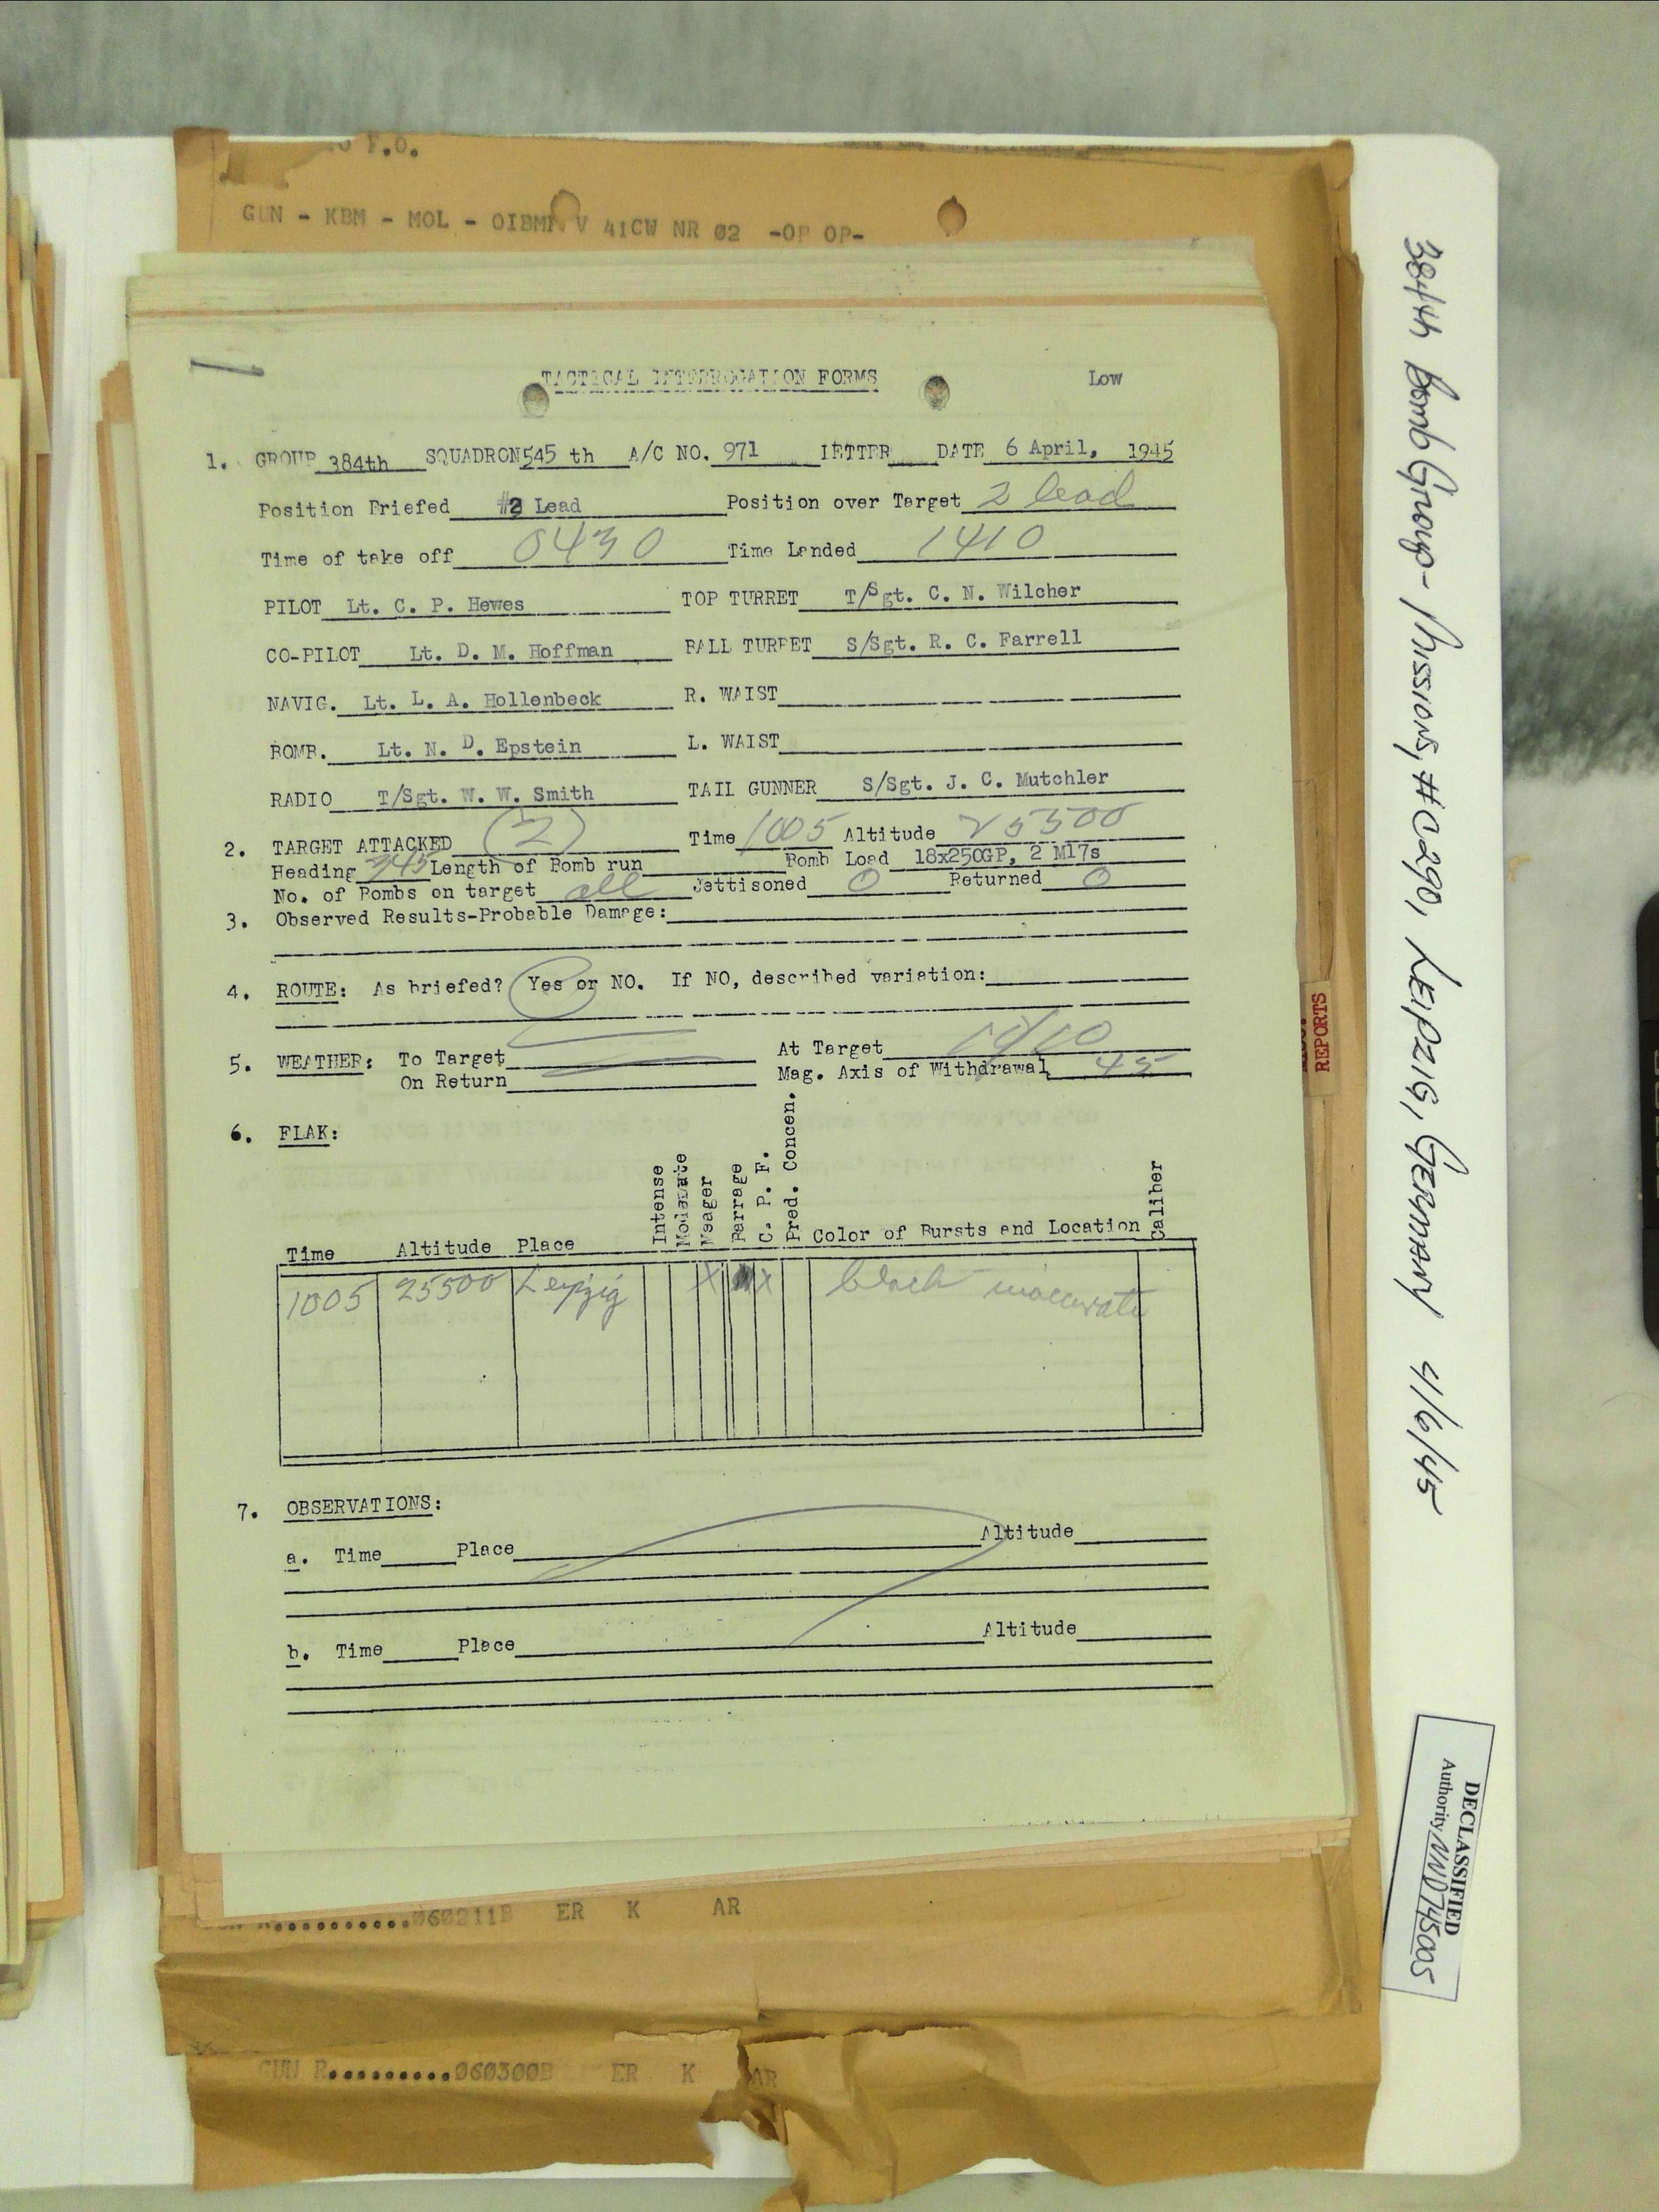 F.O.
GUN - KBM - MOL - OIBMF V 41CW NR 02 -OP OP-
TACTICAL INTERROGATION FORMS Low
1. GROUP 384th SQUADRON 545 th A/C NO. 971 LETTER DATE 6 April, 1945
Position Briefed #2 Lead Position over Target 2 lead
Time of take off 0430 Time Landed 1410
PILOT Lt. C. P. Hewes TOP TURRET T/Sgt. C. N. Wilcher
CO-PILOT Lt. D. M. Hoffman BALL TURRET S/Sgt. R. C. Farrell
NAVIG. Lt. L. A. Hollenbeck R. WAIST
BOMB. Lt. N. D. Epstein L. WAIST
RADIO T/Sgt. W. W. Smith TAIL GUNNER S/Sgt. J. C. Mutchler
2. TARGET ATTACKED (2) Time 1005 Altitude 25500
Heading 345 Length of Bomb run Bomb Load 18x250GP, 2 M17s
No. of Bombs on target all Jettisoned 0 Returned 0
3. Observed Results-Probable Damage:
4. ROUTE: As briefed? Yes or NO. If NO, described variation:
5. WEATHER: To Target At Target 10/10
On Return Mag. Axis of Withdrawal 45
6. FLAK:
Time Altitude Place Intense Moderate Meager Barrage C. P. F. Pred. Concen. Color of Bursts and Location Caliber
1005 25500 Leipzig X X black inaccurate
7. OBSERVATIONS:
a. Time Place Altitude
b. Time Place Altitude
060211B ER K AR
GUN R..........060300B ER K AR
REPORTS
384th Bomb Group - Missions, #C290, LEIPZIG, GERMANY 4/6/45
DECLASSIFIED
Authority NND745005